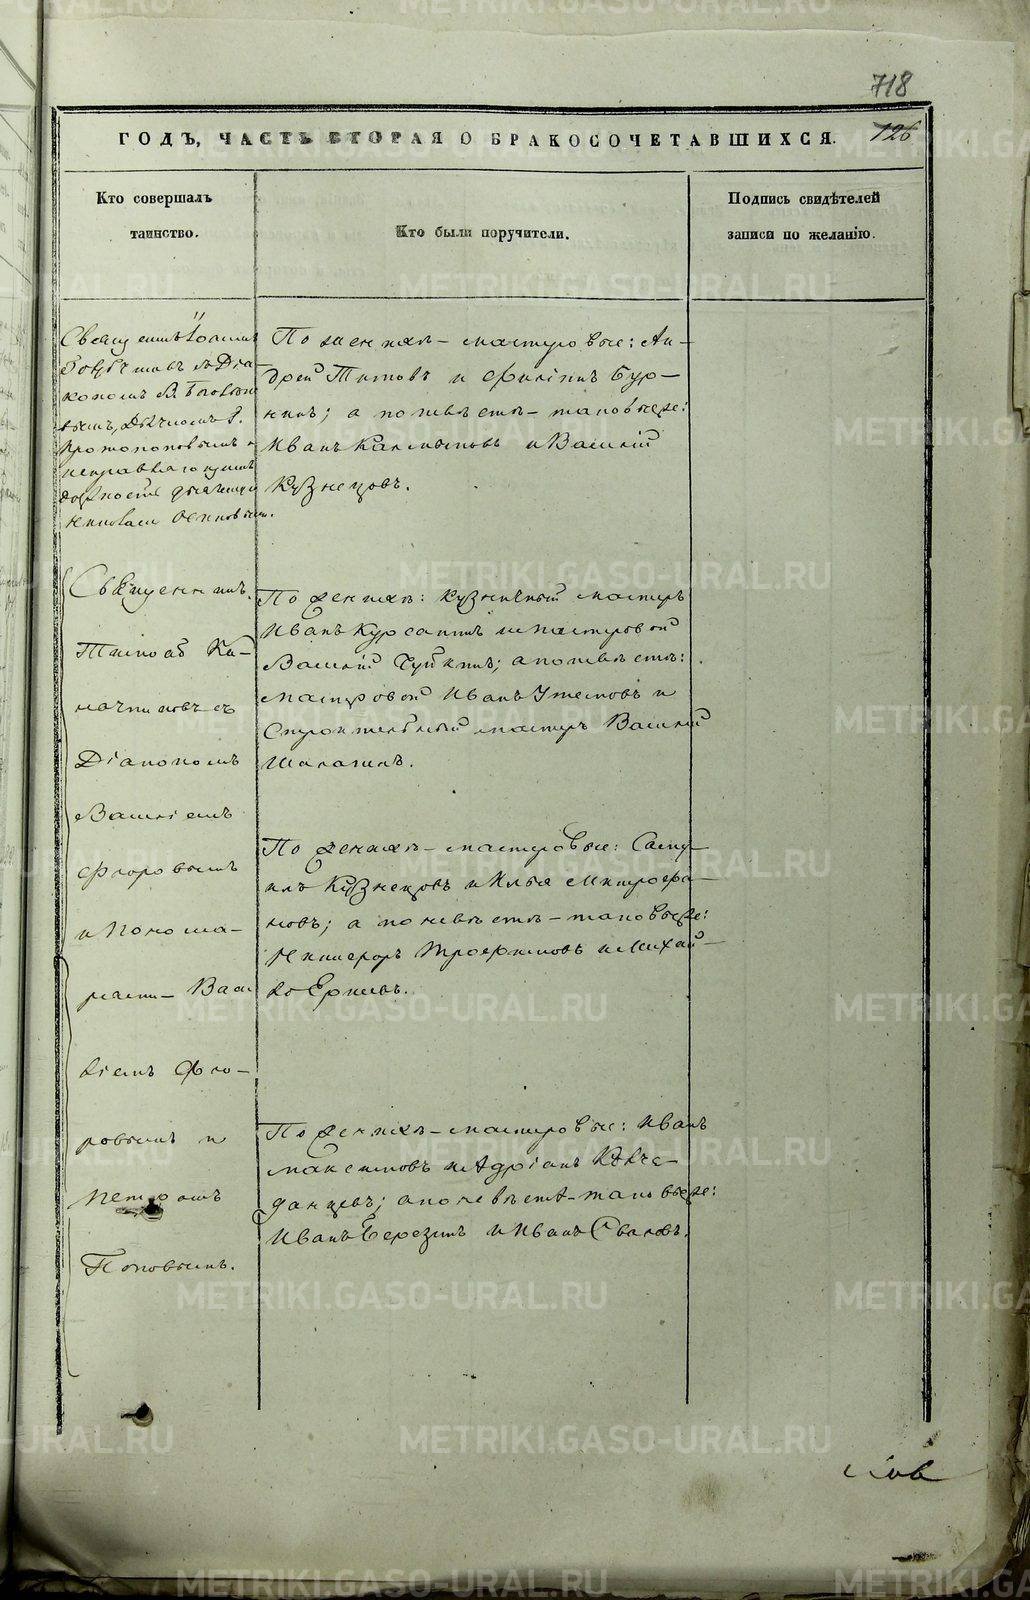 718
ГОДЪ, ЧАСТЬ ВТОРАЯ О БРАКОСОЧЕТАВШИХСЯ.
126
Кто совершалъ
таинство.
Кто были поручители.
Подпись свидѣтелей
записи по желанію.
Священникъ Іоаннъ
съ Діа-
кономъ В.
Дьячкомъ
Протопоповымъ и
исправляющимъ
должность
По женихѣ – мастеровые: Ан-
дрей Титовъ и Филиппъ Бур-
нинъ; а по невѣстѣ – таковые же:
Иванъ Калмыковъ и Василій
Кузнецовъ.
Священникъ
Тимоѳей Ка-
чъ съ
Діакономъ
Василіемъ
Флоровымъ
и Понома-
рями – Васи
ліемъ Фло-
ровымъ и
Петромъ
Поповымъ.
По женихѣ: кузничный мастеръ
Иванъ и мастеровой
Василій а по невѣстѣ:
мастеровой Иванъ Утемовъ и
Строительный мастеръ Василій
Шалагинъ.
По женихѣ – мастеровые: Саму-
илъ Кузнецовъ и Илья Митрофа-
новъ; а по невѣстѣ – таковые же:
Никифоръ Трофимовъ и Михай-
ло
По женихѣ – мастеровые: Иванъ
Макѣимовъ и Адріанъ
данцевъ; а по невѣстѣ – таковые же:
Иванъ Березинъ и Иванъ Сваловъ.
METRIKI.GASO-URAL.RU